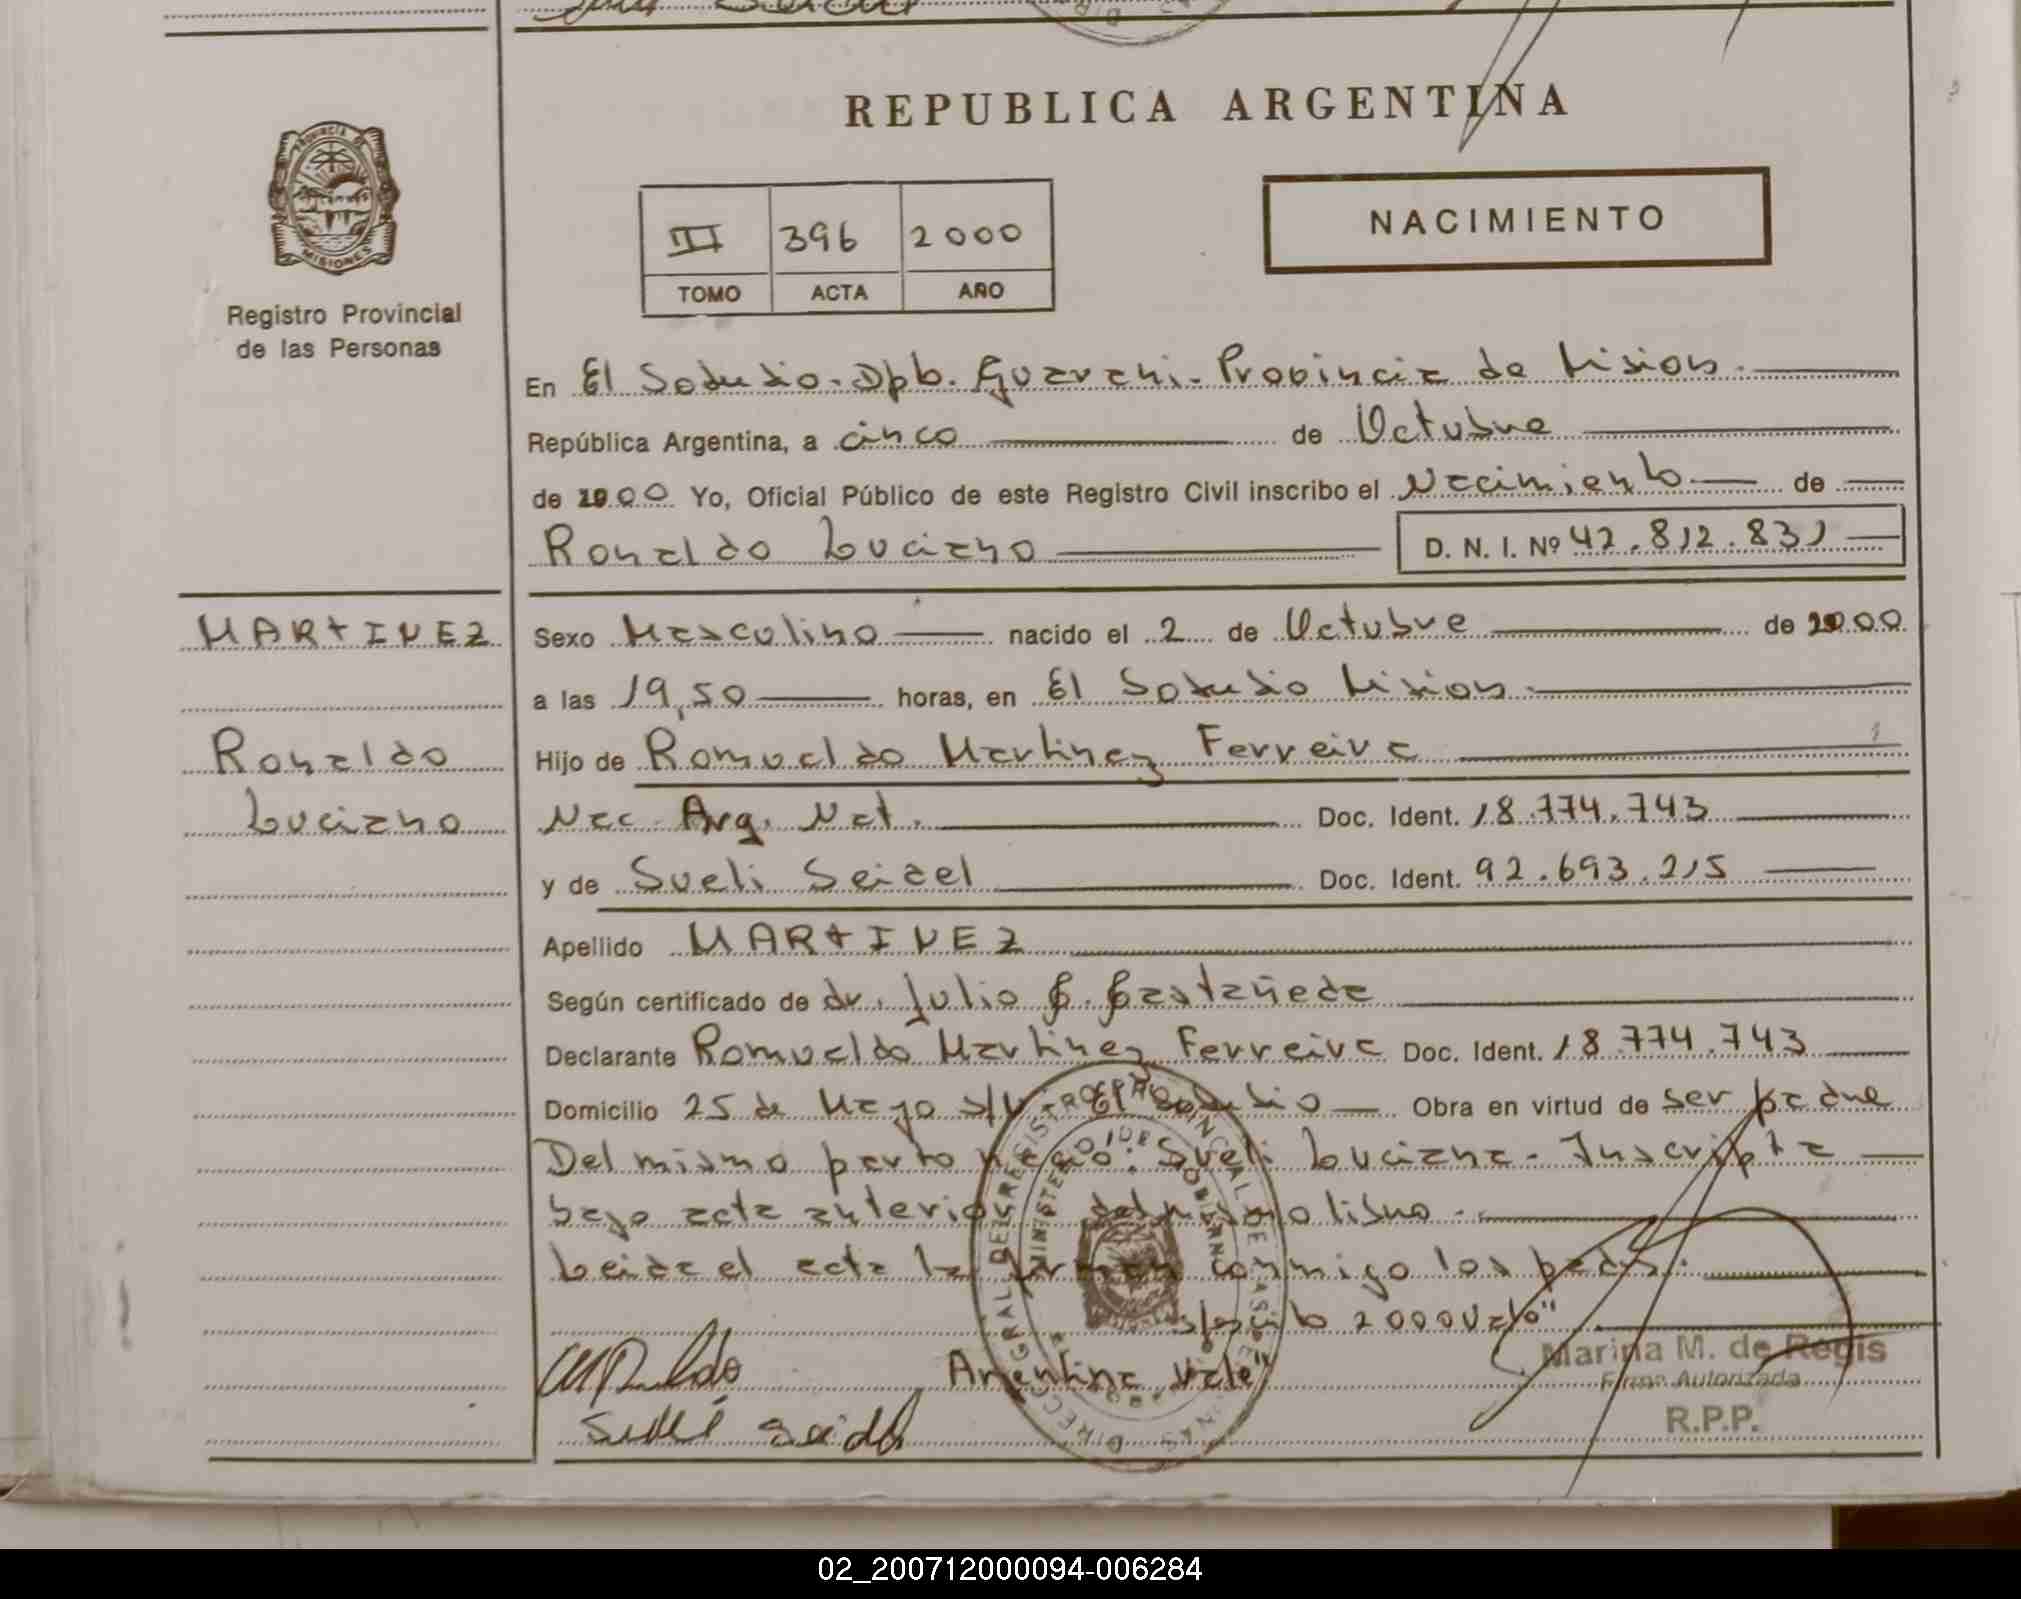 REPUBLICA ARGENTINA
PROVINCIA DE
MISIONES
Registro Provincial
de las Personas
III 396 2000
TOMO ACTA AÑO
NACIMIENTO
En El Soberbio. Dpto. Guarani. Provincia de Misiones.
República Argentina, a cinco de Octubre
de 2000 Yo, Oficial Público de este Registro Civil inscribo el Nacimiento de
Ronaldo Luciano D. N. I. Nº 42.812.831
MARTINEZ
Ronaldo
Luciano
Sexo Masculino nacido el 2 de Octubre de 2000
a las 19,50 horas, en El Soberbio Misiones.
Hijo de Romualdo Martinez Ferreira
Nac. Arg. Nat. Doc. Ident. 18.774.743
y de Sueli Seidel Doc. Ident. 92.693.215
Apellido MARTINEZ
Según certificado de dr. Julio C. Castañeda
Declarante Romualdo Martinez Ferreira Doc. Ident. 18.774.743
Domicilio 25 de Mayo s/N El Soberbio Obra en virtud de ser padre
Del mismo parto nacio: Sueli Luciana. Inscripta
bajo acta anterior del mismo libro.
Leida el acta la firman conmigo los padres.
2000 Vale"
Argentina Vale"
Marina M. de Regis
Firma Autorizada
R.P.P.
02_200712000094-006284